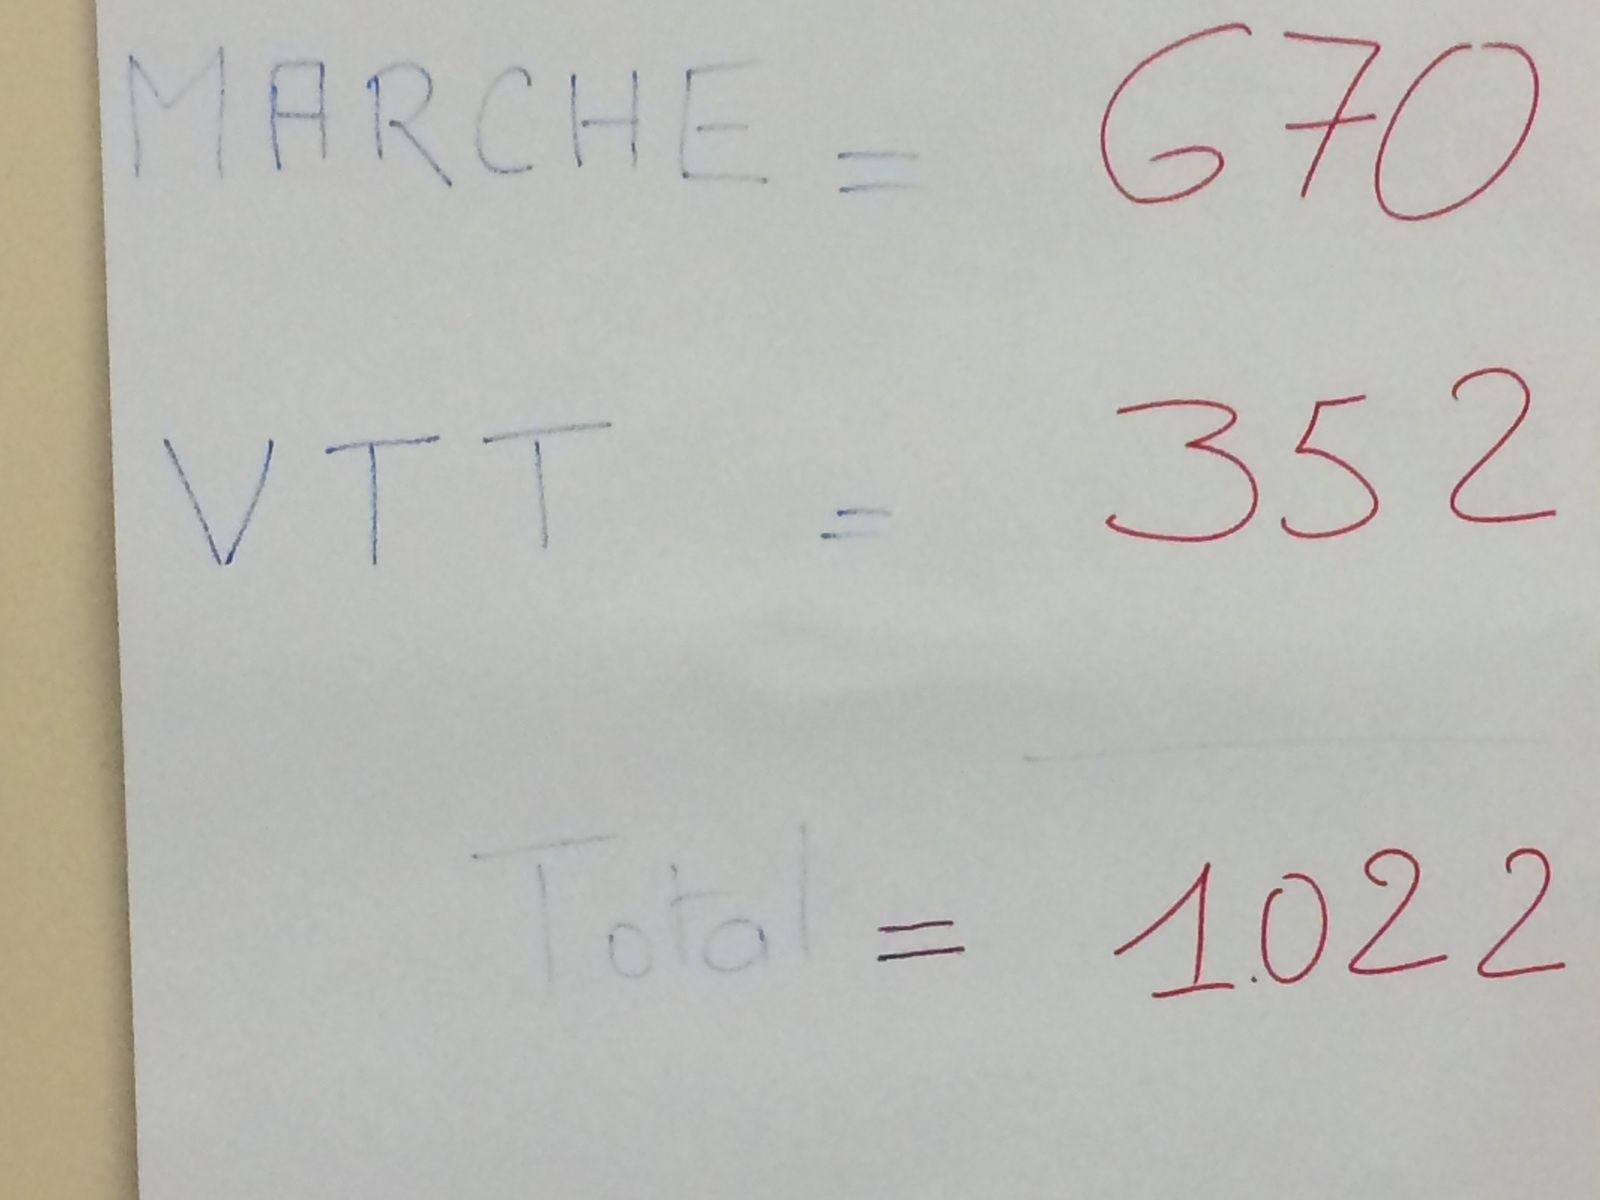 MARCHE = 670
VTT = 352
Total = 1.022